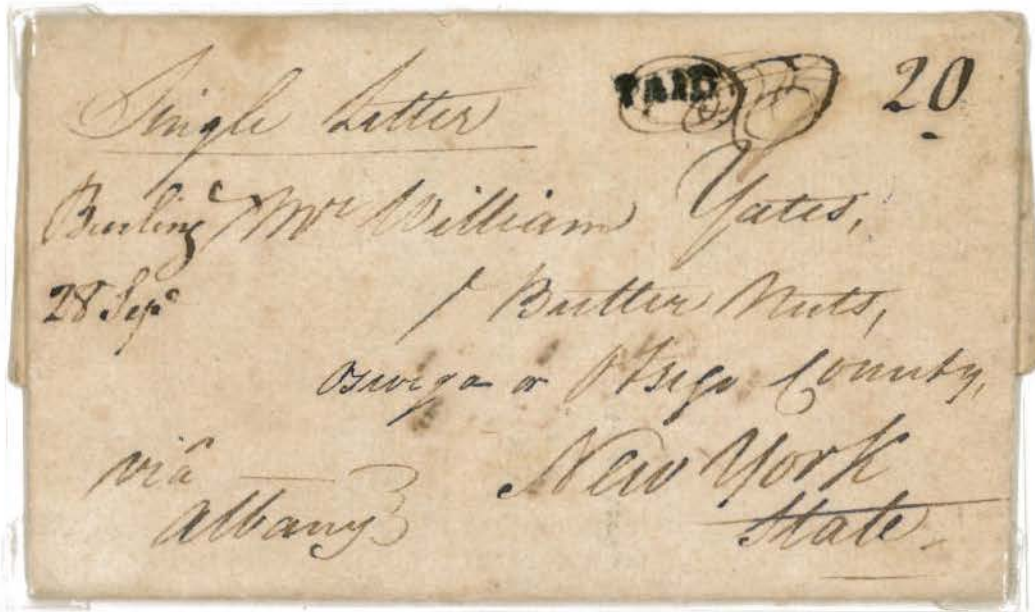 Single Letter
PAID 20
Burling^c Mr William Yates,
28 Sep^r
Butter Nuts,
oswega or Otsego County,
New York
State.
via
Albany